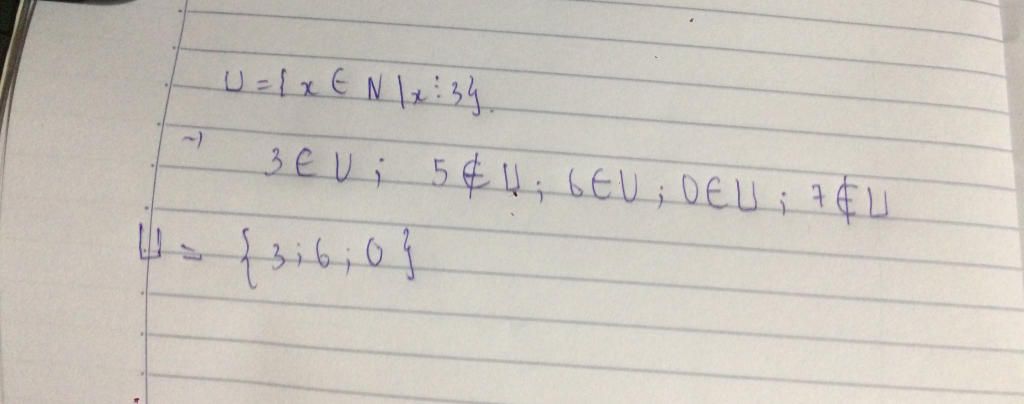 U = {x ∈ N | x ⋮ 3}.
→ 3 ∈ U ; 5 ∉ U ; 6 ∈ U ; 0 ∈ U ; 7 ∉ U
U = {3 ; 6 ; 0}